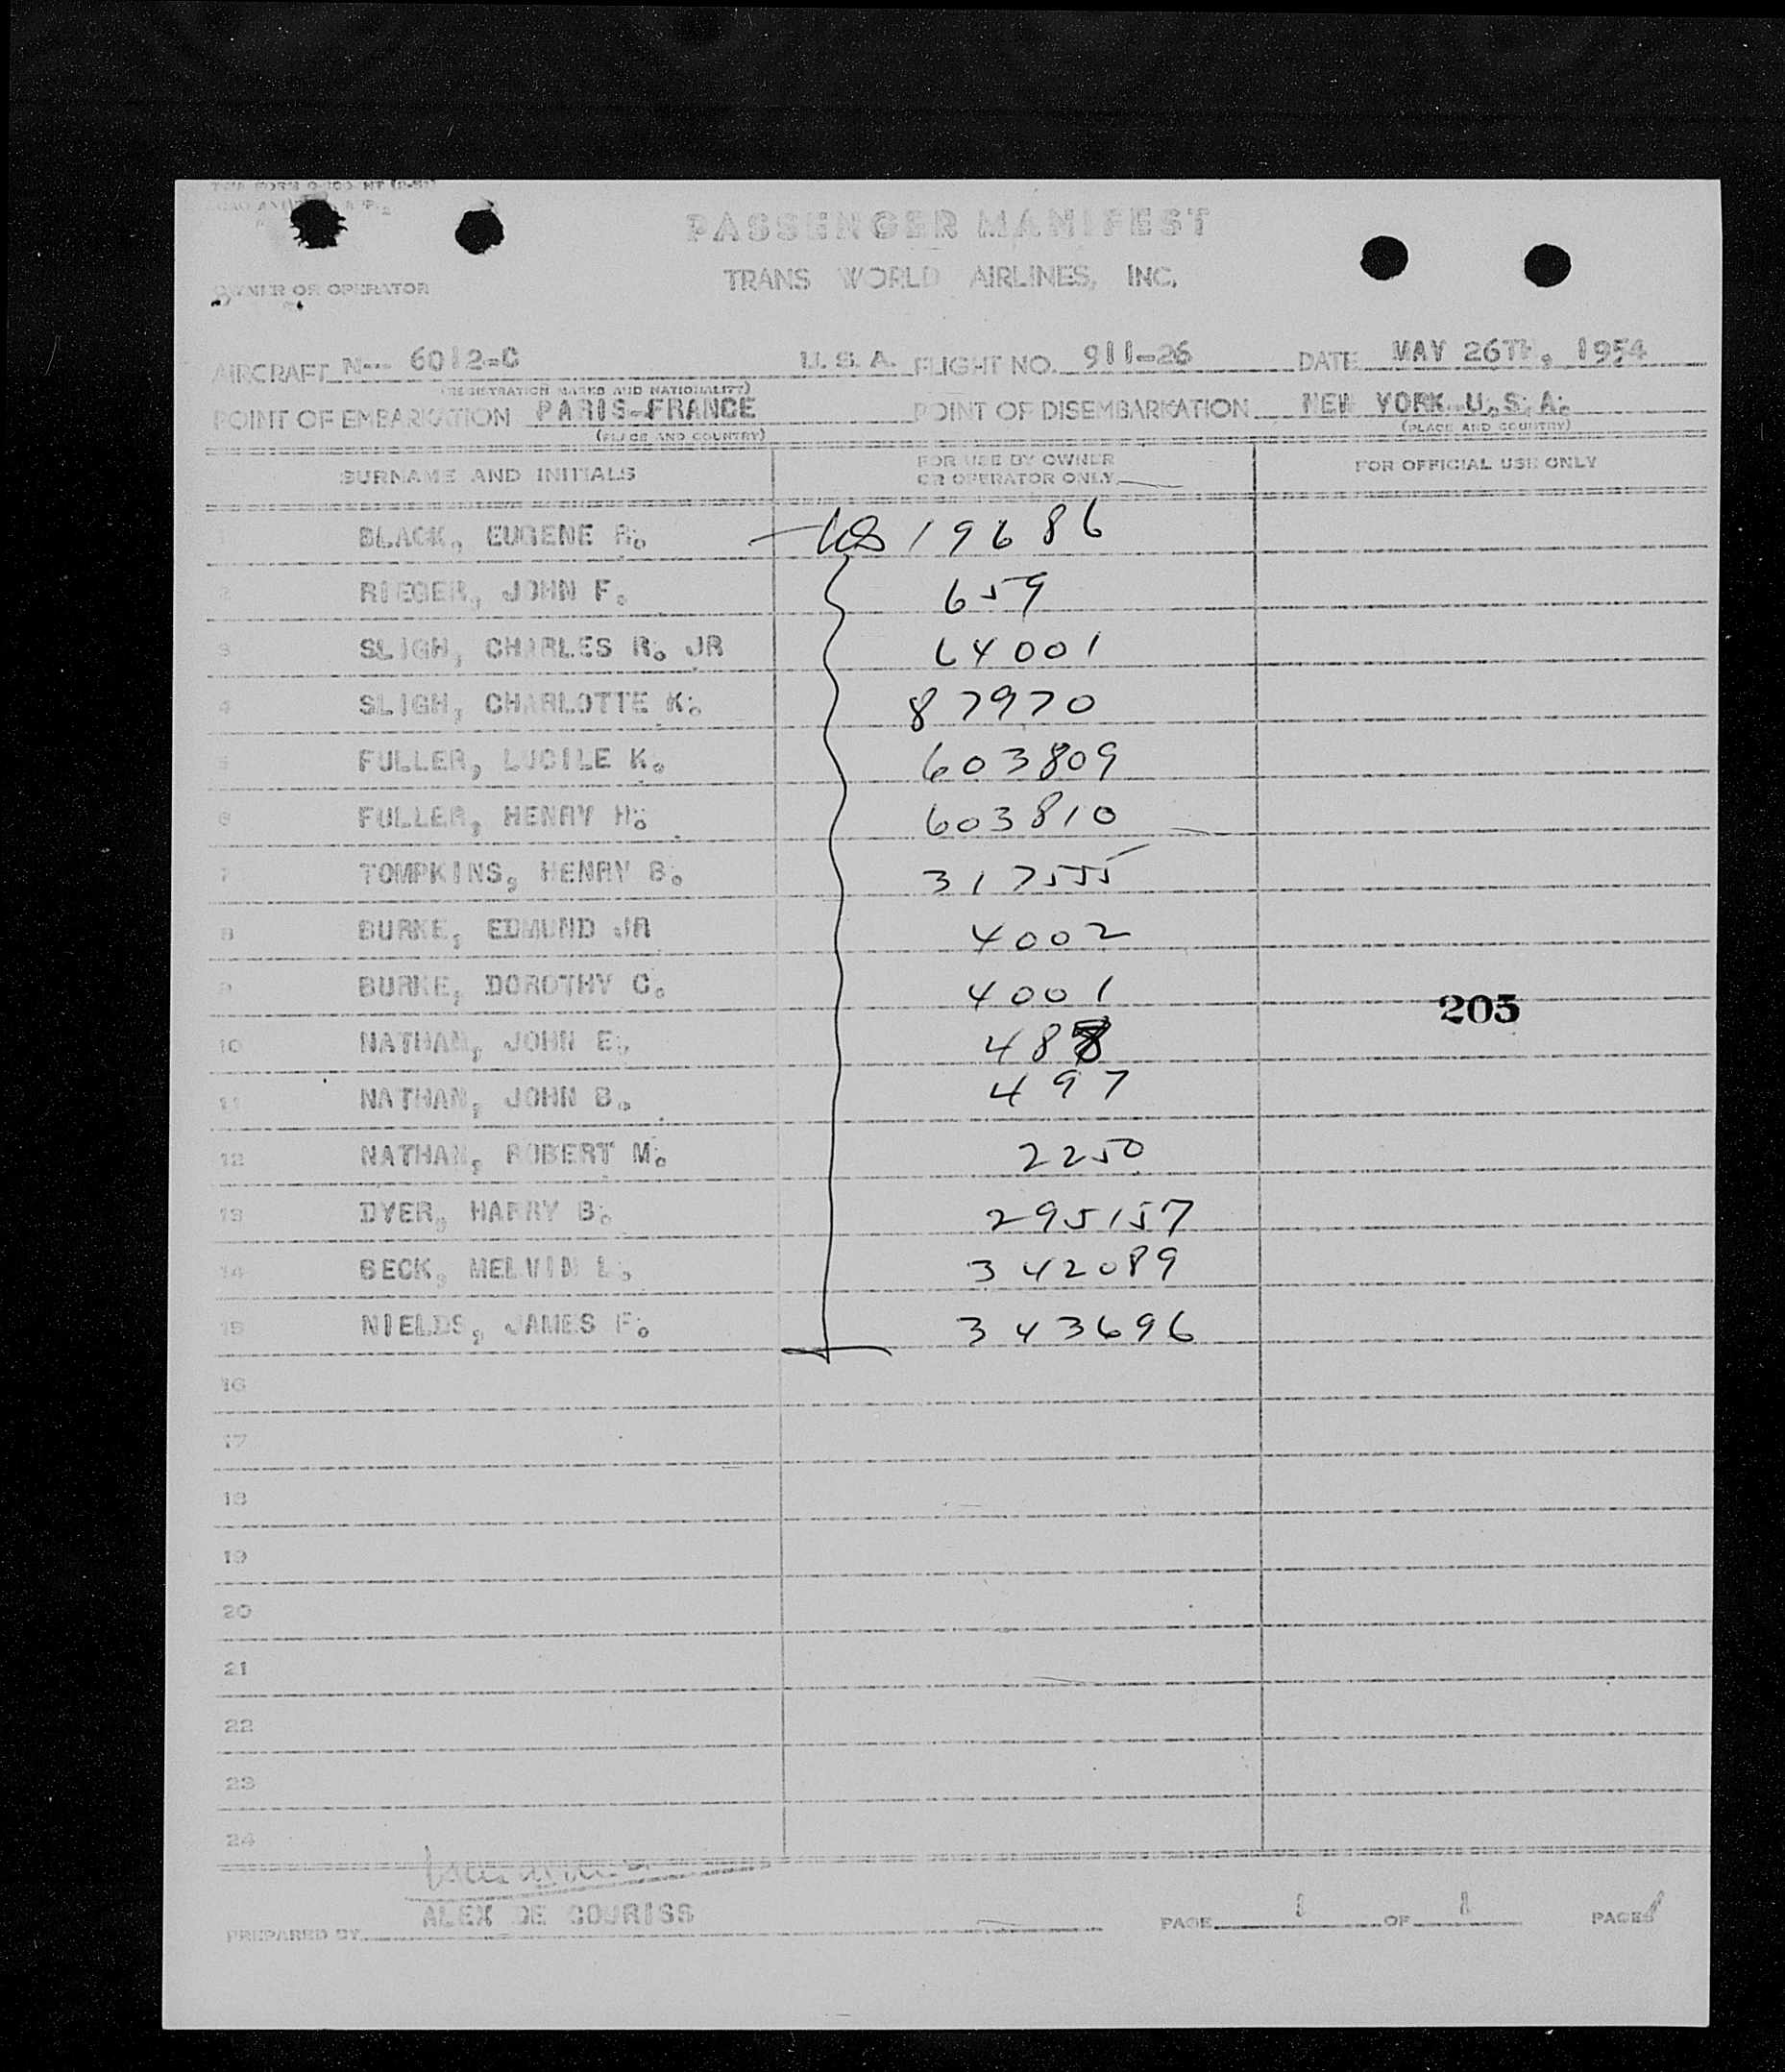 PASSENGER MANIFEST
TRANS WORLD AIRLINES, INC.
OWNER OR OPERATOR
AIRCRAFT N--- 6012=C U.S.A. FLIGHT NO. 911-26 DATE MAY 26TH, 1954
(REGISTRATION MARKS AND NATIONALITY)
POINT OF EMBARKATION PARIS-FRANCE POINT OF DISEMBARKATION NEW YORK U.S.A.
(PLACE AND COUNTRY) (PLACE AND COUNTRY)
SURNAME AND INITIALS FOR USE BY OWNER OR OPERATOR ONLY FOR OFFICIAL USE ONLY
BLACK, EUGENE R. 19686
2 RIEGER, JOHN F. 659
3 SLIGH, CHARLES R. JR 64001
4 SLIGH, CHARLOTTE K. 87970
5 FULLER, LUCILE K. 603809
6 FULLER, HENRY H. 603810
7 TOMPKINS, HENRY B. 317555
8 BURKE, EDMUND JR 4002
9 BURKE, DOROTHY C. 4001
205
10 NATHAN, JOHN E. 488
11 NATHAN, JOHN B. 497
12 NATHAN, ROBERT M. 2250
13 DYER, HARRY B. 295157
14 BECK, MELVIN L. 342089
15 NIELDS, JAMES F. 343696
16
17
18
19
20
21
22
23
24
ALEX DE COURISS
PREPARED BY PAGE 1 OF 1 PAGES